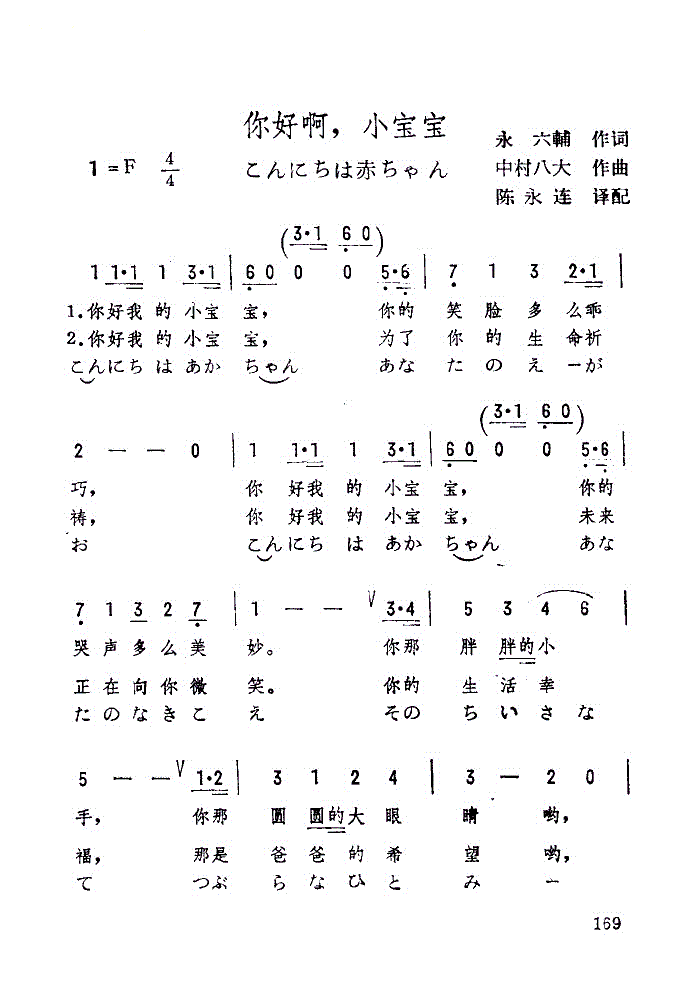 你好啊，小宝宝
永 六輔 作词
1=F 4/4 こんにちは赤ちゃん 中村八大 作曲
陈永连 译配
(3·1 6 0)
1 1·1 1 3·1 | 6 0 0 0 5·6 | 7 1 3 2·1 |
1.你好我 的 小宝 宝， 你的 笑 脸 多 么乖
2.你好我 的 小宝 宝， 为了 你 的 生 命祈
こんにち は あか ちゃん あな た の え ーが
(3·1 6 0)
2 — — 0 | 1 1·1 1 3·1 | 6 0 0 0 5·6 |
巧， 你 好我 的 小宝 宝， 你的
祷， 你 好我 的 小宝 宝， 未来
お こんにち は あか ちゃん あな
7 1 3 2 7 | 1 — — V 3·4 | 5 3 4 6 |
哭 声 多 么 美 妙。 你那 胖 胖的小
正 在 向 你 微 笑。 你的 生 活 幸
た の な き こ え その ち い さ な
5 — — V 1·2 | 3 1 2 4 | 3 — 2 0 |
手， 你那 圆 圆的大 眼 睛 哟，
福， 那是 爸 爸 的 希 望 哟，
て つぶ ら な ひ と み ー
169